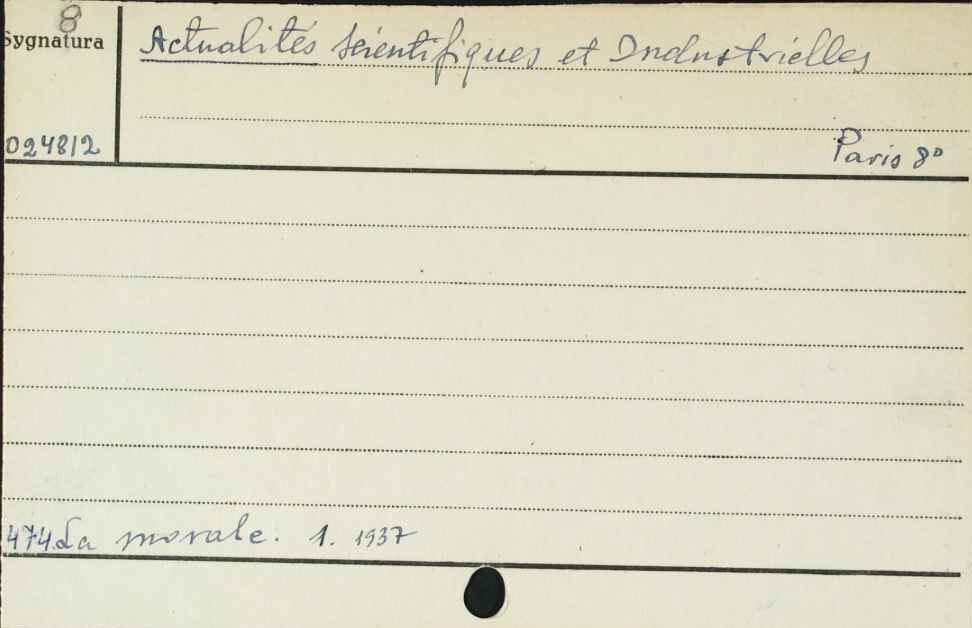 8
Sygnatura
Actualités scientifiques et Industrielles
024812
Paris 8°
474. La morale. 1. 1937